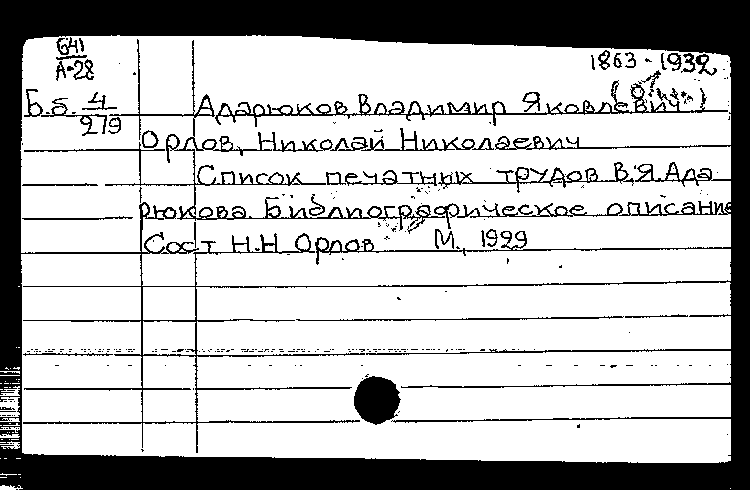 641
А-28
1863-1932
Б.б. 4/279
Адарюков, Владимир Яковлевич
Орлов, Николай Николаевич
Список печатных трудов В.Я. Ада
рюкова. Библиографическое описание
Сост Н.Н Орлов М., 1929